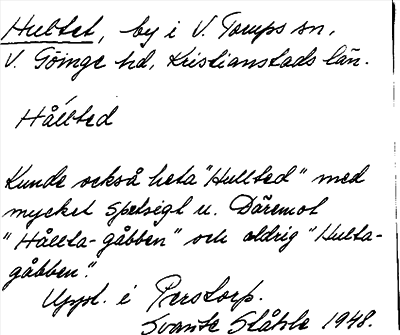 Hultet, by i V. Torups sn,
V. Göinge hd, Kristianstads län.
Hållted
Kunde också heta "Hullted" med
mycket spetsigt u. Däremot
"Hållta-gåbben" och aldrig "Hulta-
gåbben."
Uppt. i Perstorp.
Svante Ståhle 1948.